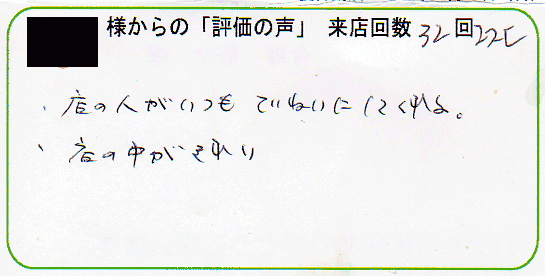 様からの「評価の声」 来店回数 32 回
・店の人がいつもていねいにしてくれる。
・店の中がきれい